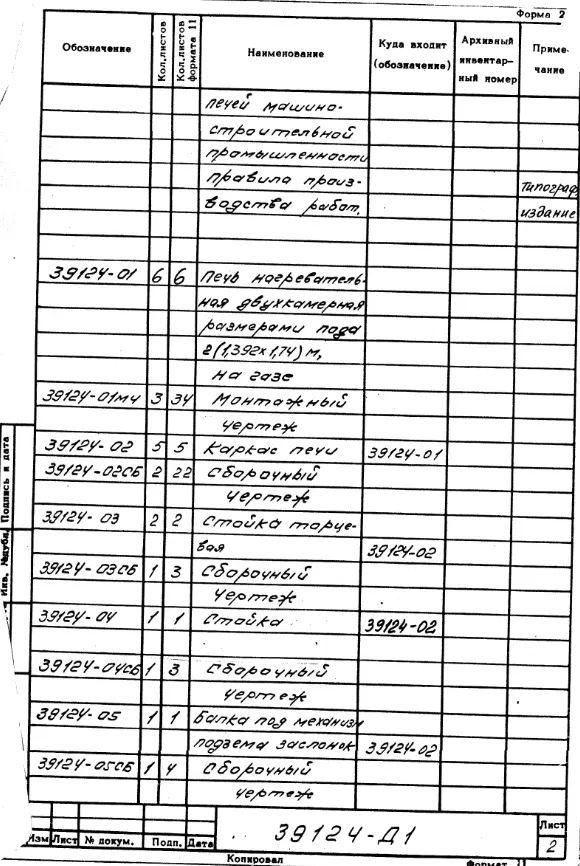 Форма 2
Обозначение Кол.листов Кол.листов формата 11 Наименование Куда входит (обозначение) Архивный инвентар- ный номер Приме- чание
печей машино-
строительной
промышленности
правила произ- Типограф.
водства работ. издание
39124-01 6 6 Печь нагреватель-
ная двухкамерная
размерами пода
2(1,392х1,74)м,
на газе
39124-01МЧ 3 34 Монтажный
чертеж
39124-02 5 5 Каркас печи 39124-01
39124-02СБ 2 22 Сборочный
чертеж
39124-03 2 2 Стойка торце-
вая 39124-02
39124-03СБ 1 3 Сборочный
чертеж
39124-04 1 1 Стойка 39124-02
39124-04СБ 1 3 Сборочный
чертеж
39124-05 1 1 Балка под механизм
подъема заслонок 39124-02
39124-05СБ 1 4 Сборочный
чертеж
Подпись и дата
Инв. №дубл.
Изм Лист № докум. Подп. Дата
39124-Д1
Лист
2
Копировал Формат 11